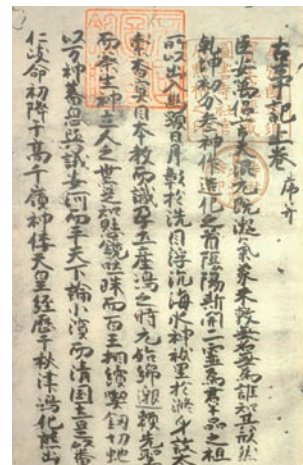 古事記上巻 序并
臣安萬侶言夫混元既凝氣象未效無名無為誰知其形然
乾坤初分參神作造化之首陰陽斯開二靈為群品之祖
所以出入幽顯日月彰於洗目浮沉海水神祇呈於滌身故太
素杳冥因本教而識孕土産嶋之時元始綿邈頼先聖
而察生神立人之世寔知懸鏡吐珠而百王相續喫釼切蛇
以万神蕃息與議安河而平天下論小濱而清國土是以番
仁岐命初降于高千嶺神倭天皇經歷于秋津嶋化熊出